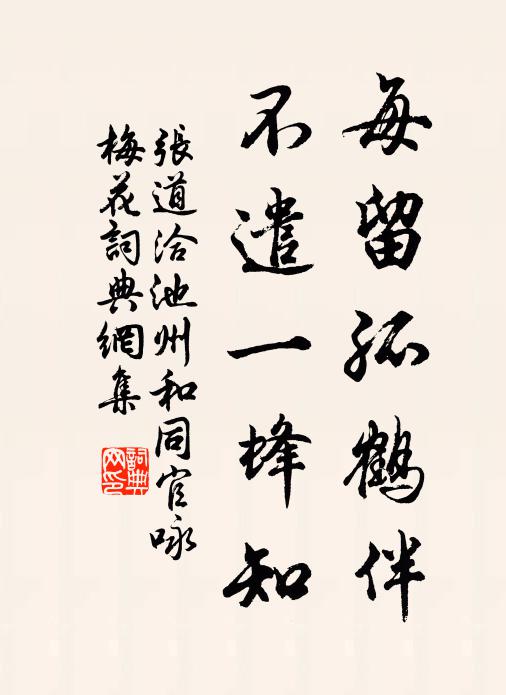 每留孤鶴伴
不遣一蜂知
張道洽池州和同官咏
梅花詞典網集
詞典网印